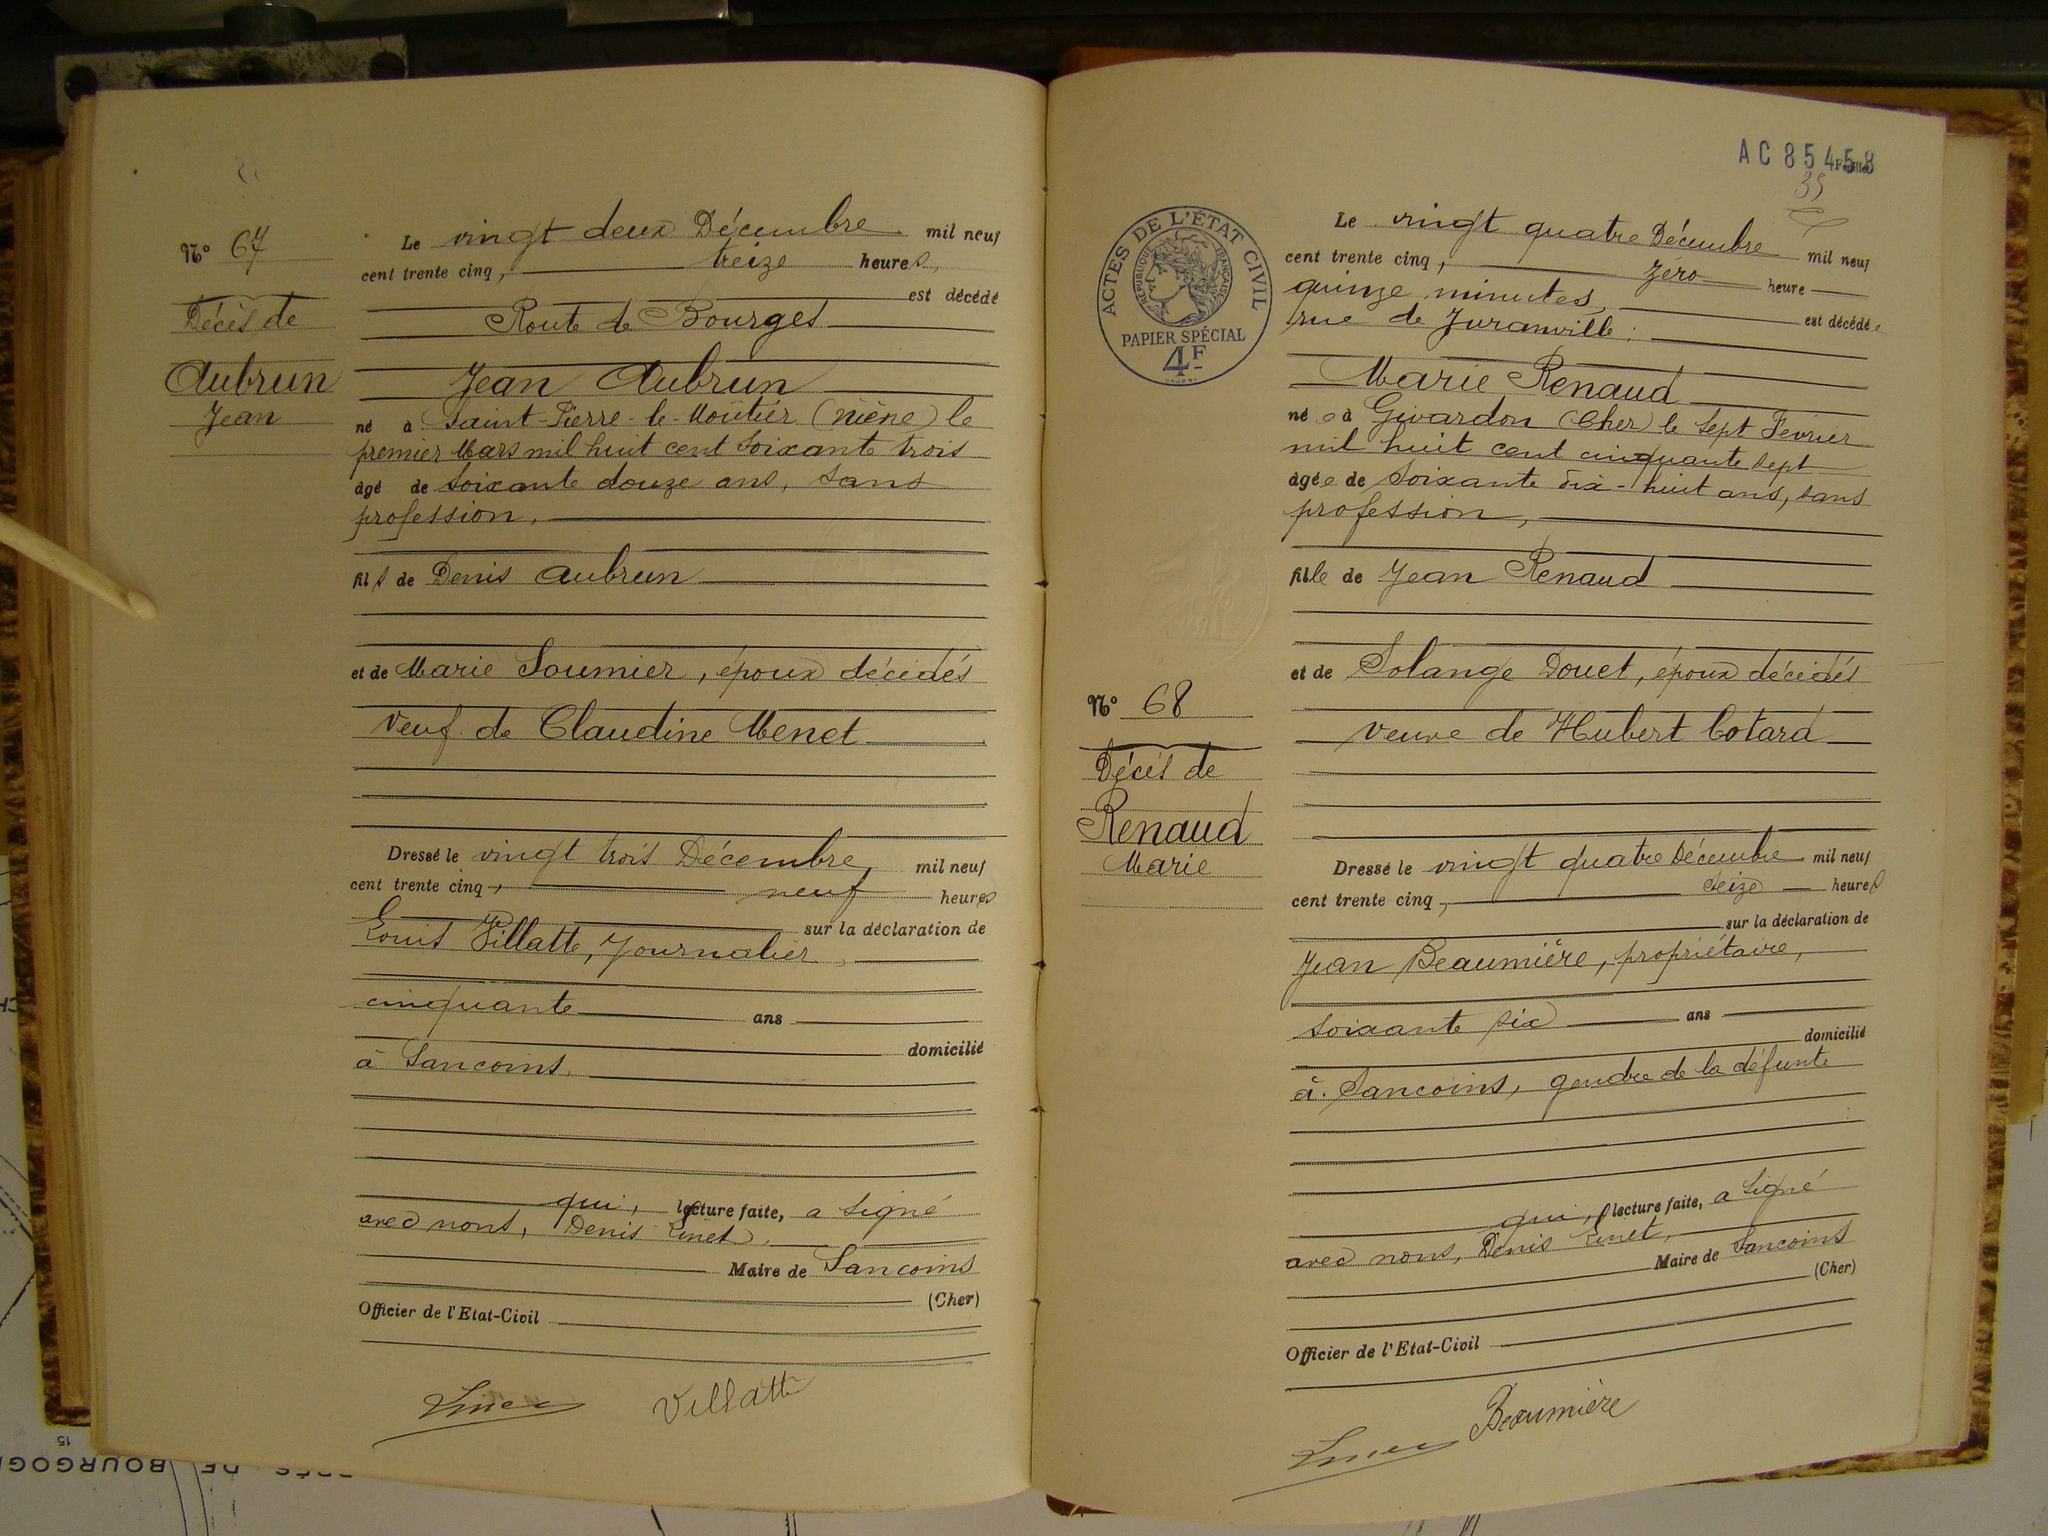 N° 67
Décès de
Aubrun
Jean
Le vingt deux Décembre mil neuf
cent trente cinq, treize heures,
est décédé
Route de Bourges
Jean Aubrun
né à Saint-Pierre-le-Moûtier (Nièvre) le
premier Mars mil huit cent soixante trois
âgé de soixante douze ans, sans
profession,
fils de Denis Aubrun
et de Marie Soumier, époux décédés
Veuf de Claudine Menet
Dressé le vingt trois Décembre, mil neuf
cent trente cinq, neuf heures
sur la déclaration de
Louis Villatte, Journalier,
cinquante ans
domicilié
à Sancoins.
qui, lecture faite, a signé
avec nous, Denis Linet,
Maire de Sancoins
(Cher)
Officier de l'Etat-Civil
Villatte
AC 85458
Feuillet
35
ACTES DE L'ÉTAT CIVIL
RÉPUBLIQUE FRANÇAISE
PAPIER SPÉCIAL
4F
Le vingt quatre Décembre mil neuf
cent trente cinq, zéro heure
quinze minutes, est décédée
rue de Juranville,
Marie Renaud
née à Givardon (Cher) le sept Février
mil huit cent cinquante sept
âgée de soixante dix-huit ans, sans
profession,
fille de Jean Renaud
et de Solange Douet, époux décédés
veuve de Hubert Cotard
N° 68
Décès de
Renaud
Marie
Dressé le vingt quatre Décembre mil neuf
cent trente cinq, seize heures
sur la déclaration de
Jean Beaumière, propriétaire,
soixante six ans
domicilié
à Sancoins, gendre de la défunte
qui, lecture faite, a signé
avec nous, Denis Linet,
Maire de Sancoins
(Cher)
Officier de l'Etat-Civil
Beaumière